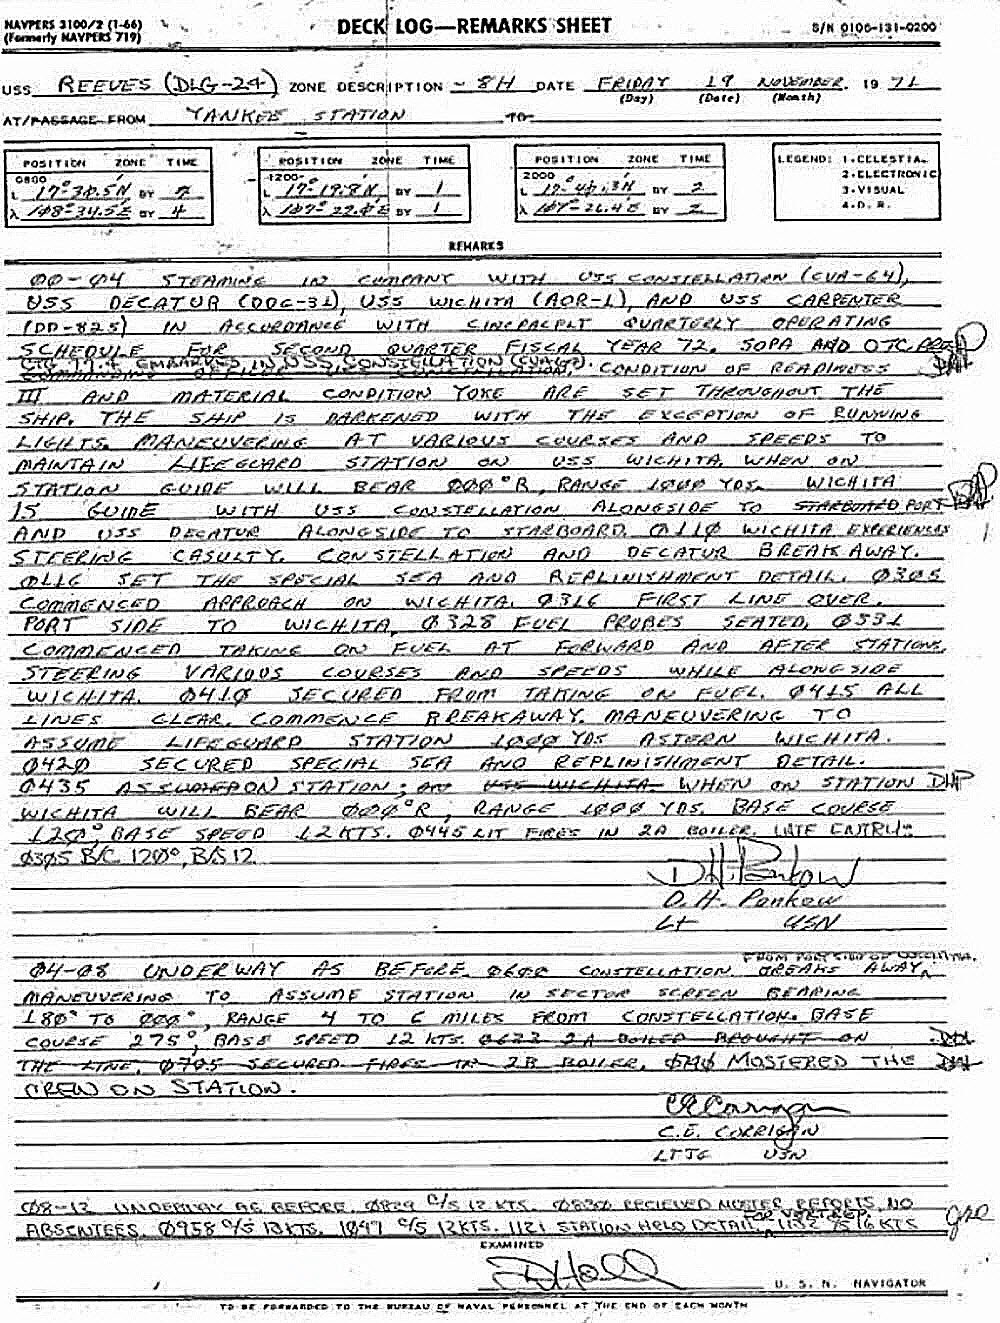 NAVPERS 3100/2 (1-66)
(Formerly NAVPERS 719)
DECK LOG—REMARKS SHEET
S/N 0106-131-0200
USS REEVES (DLG-24) ZONE DESCRIPTION -8H DATE FRIDAY 19 NOVEMBER 1971
(Day) (Date) (Month)
AT/PASSAGE FROM YANKEE STATION TO
POSITION ZONE TIME
0800
L 17°-30.5N BY 2
λ 108°-34.5E BY 4
POSITION ZONE TIME
1200
L 17°-19.8N BY 1
λ 107°-22.0E BY 1
POSITION ZONE TIME
2000
L BY 2
λ 107°-26.4E BY 2
LEGEND: 1.CELESTIAL
2.ELECTRONIC
3.VISUAL
4.D.R.
REMARKS
00-04 STEAMING IN COMPANY WITH USS CONSTELLATION (CVA-64),
USS DECATUR (DDG-31), USS WICHITA (AOR-1), AND USS CARPENTER
(DD-825) IN ACCORDANCE WITH CINCPACFLT QUARTERLY OPERATING
SCHEDULE FOR SECOND QUARTER FISCAL YEAR 72. SOPA AND OTC
EMBARKED IN USS CONSTELLATION (CVA-64).
CONDITION OF READINESS
III AND MATERIAL CONDITION YOKE ARE SET THROUGHOUT THE
SHIP. THE SHIP IS DARKENED WITH THE EXCEPTION OF RUNNING
LIGHTS. MANEUVERING AT VARIOUS COURSES AND SPEEDS TO
MAINTAIN LIFEGUARD STATION ON USS WICHITA. WHEN ON
STATION GUIDE WILL BEAR 000°R, RANGE 1000 YDS. WICHITA
IS GUIDE WITH USS CONSTELLATION ALONGSIDE TO STARBOARD PORT
AND USS DECATUR ALONGSIDE TO STARBOARD. 0110 WICHITA EXPERIENCES
STEERING CASULTY. CONSTELLATION AND DECATUR BREAKAWAY.
0116 SET THE SPECIAL SEA AND REPLINISHMENT DETAIL. 0305
COMMENCED APPROACH ON WICHITA. 0316 FIRST LINE OVER.
PORT SIDE TO WICHITA. 0328 FUEL PROBES SEATED. 0331
COMMENCED TAKING ON FUEL AT FORWARD AND AFTER STATIONS.
STEERING VARIOUS COURSES AND SPEEDS WHILE ALONGSIDE
WICHITA. 0410 SECURED FROM TAKING ON FUEL. 0415 ALL
LINES CLEAR. COMMENCE BREAKAWAY. MANEUVERING TO
ASSUME LIFEGUARD STATION 1000 YDS ASTERN WICHITA.
0420 SECURED SPECIAL SEA AND REPLINISHMENT DETAIL.
0435 ON STATION; USS WICHITA WHEN ON STATION DHP
WICHITA WILL BEAR 000°R, RANGE 1000 YDS. BASE COURSE
120°, BASE SPEED 12 KTS. 0445 LIT FIRES IN 2A BOILER. LATE ENTRY:
0305 B/C 120°, B/S 12
D. H. Pankow
Lt USN
04-08 UNDERWAY AS BEFORE. 0600 CONSTELLATION BREAKS AWAY
MANEUVERING TO ASSUME STATION IN SECTOR SCREEN BEARING
180° TO 000°, RANGE 4 TO 6 MILES FROM CONSTELLATION. BASE
COURSE 275°, BASE SPEED 12 KTS. 0622 2A BOILER BROUGHT ON
THE LINE. 0705 SECURED FIRES IN 2B BOILER. MUSTERED THE
CREW ON STATION.
C.E. CORRIGAN
LTJG USN
08-12 UNDERWAY AS BEFORE. 0829 C/S 12 KTS. 0830 RECIEVED MUSTER REPORTS, NO
ABSENTEES. 0958 C/S KTS. 1047 C/S 12KTS. 1121 STATION HELO DETAIL FOR VERTREP. C/S 16 KTS
EXAMINED
U. S. N. NAVIGATOR
TO BE FORWARDED TO THE BUREAU OF NAVAL PERSONNEL AT THE END OF EACH MONTH